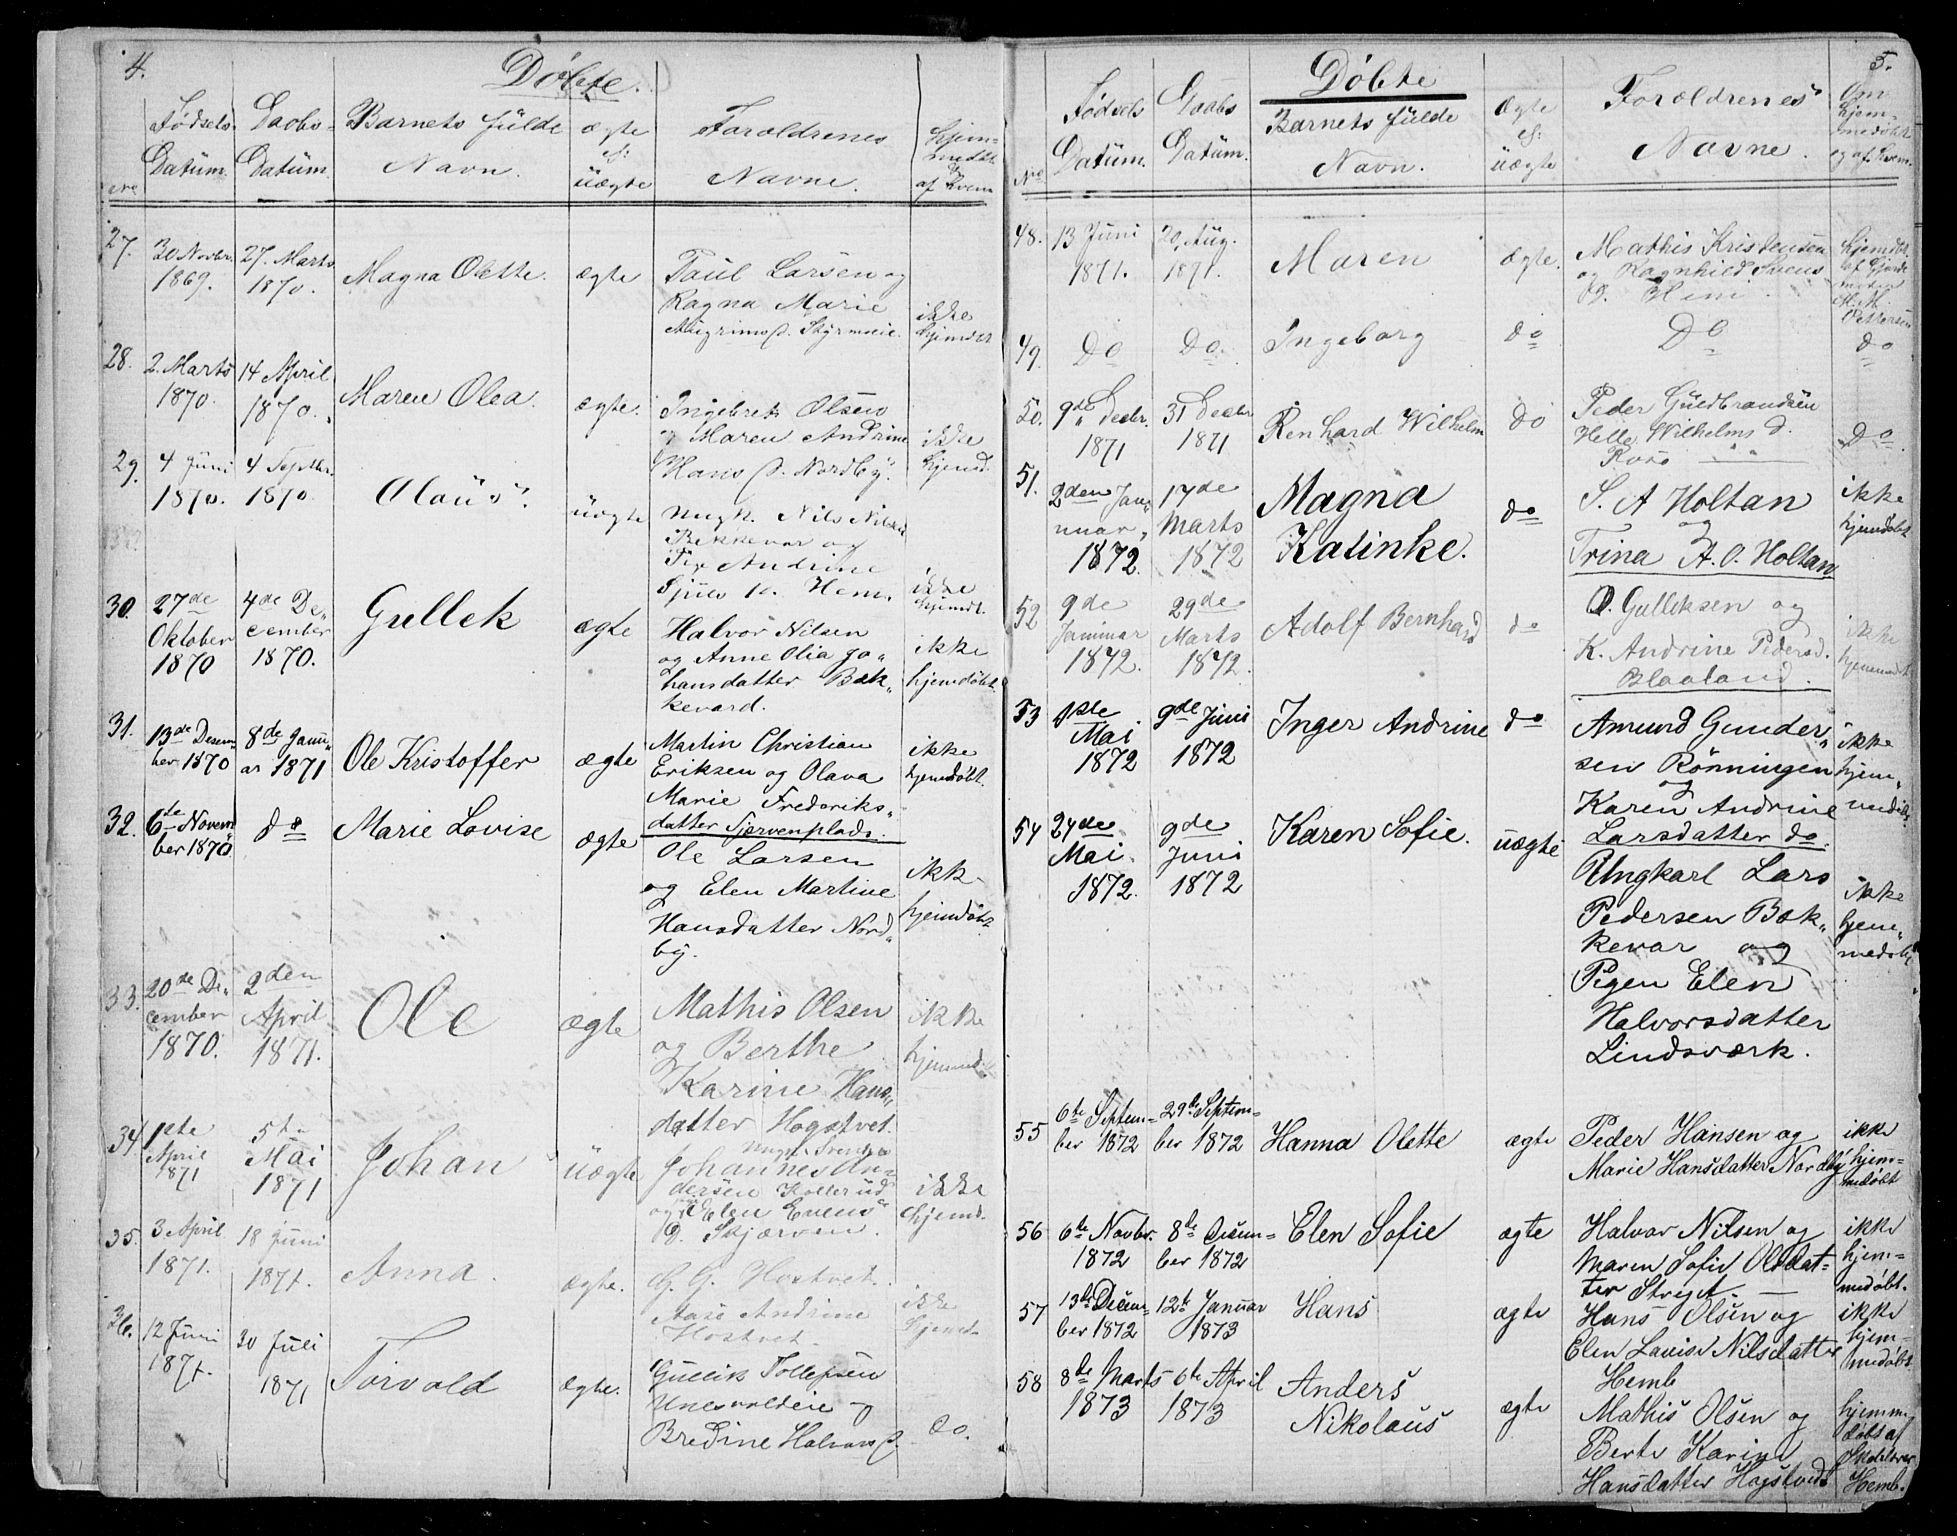 4.
Döbte.
Fødsels- Datüm. Daabs- Datüm. Barnets fülde Navn. ægte el: üægte Forældrenes Navne.
27. 30 Novbr. 1869. 27. Marts 1870. Magna Olette. ægte
Paul Larsen og
Ragna Marie
ikke
28. 2. Marts 1870. 14 April 1870. Maren Olea. ægte.
Ingebret Olsen
og Maren Andrine
Hans D. Nordby.
ikke
hjemd.
29. 4 Juni 1870. 4 Septbr. 1870 Olaüs. üægte
Nils Nilsen
Bekkevar og
Andrine
ikke
30. 27de Oktober 1870 4de De„ cember 1870. Gullek ægte
Halvor Nilsen
og Anne Olia Jo„
hansdatter Bak„
kevard.
ikke
hjemdöbt.
31. 13de Desem ber 1870 8de Janü„ ar 1871 Ole Kristoffer ægte
Martin Christian
Eriksen og Olava
Marie Frederiks„
datter Sjærvenplads.
ikke
hjemdöbt.
32. 6te Novem ber 1870 do Marie Lovise ægte
Ole Larsen
og Elen Martine
Hansdatter Nord„
by.
ikke
hjemdöbt
33. 20de De„ cember 1870. 2den April 1871. Ole ægte
Mathis Olsen
og Berthe
Karine Hans„
datter Hogstvet.
ikke
34 1ste April 1871 5te Mai 1871 Johan üægte
Johannes An-
dersen Kollerud
og Elen Evens
D. Skjærven.
ikke
hjemd.
35. 3 April 1871. 18 Juni 1871. Anna. ægte.
G. G. Hostvet.
Aase Andrine
Hostvet.
ikke
hjemd.
36. 12 Juni 1871. 30 Juli 1871 Torvald ægte.
Güllik Tollefsen
og
Bredine Halvors D.
do.
5.
Döbte
No Fødsels Datüm. Daabs Datüm. Barnets fülde Navn. ægte el: üægte Forældrenes Navne.
Om
hjem-
medöbt
og af hvem.
48. 13 Juni 1871. 20. Aug. 1871. Maren ægte.
Mathis Kristensen
og Ragnhild
D. Hem.
49. Do Do Ingeborg do Do do
50. 9de Decbr. 1871 31 Decbr 1871 Renhard Wilhelm do
Peder Güldbrandsen
Helle Wilhelms D.
Do.
51. 2den Jan„ nuar„ 1872. 17de Marts 1872 Magna Katinke. do
S. A Holtan
og
Trina A. O. Holtan
ikke
hjemdöbt
52 9de Januar 1872. 29de Marts 1872. Adolf Bernhard do
O. Gulleksen og
K. Andrine Pedersd.
Blaaland.
ikke
53 1ste Mai 1872 9de Juni 1872 Inger Andrine do
Amund Gunder„
sen Rönningen
og
Karen Andrine
Larsdatter do.
ikke
hjem„
54 24de Mai 1872. 9de Juni 1872 Karen Sofie. uægte
Ungkarl Lars
Pedersen Bak„
kevar og
Pigen Elen
Halvorsdatter
Lindsværk.
ikke
hjem„
55 6te Septem- ber 1872 29de Septem- ber 1872 Hanna Olette ægte
Peder Hansen og
Marie Hansdatter Nordby
ikke
hjem-
medöbt
56 6te Novbr. 1872 8de Desem- ber 1872 Elen Sofie ægte
Halvor Nilsen og
Maren Sofie Olsdat-
ter Striget. —
ikke
hjem-
medöbt.
57 13de Decem ber 1872 12te Januar 1873 Hans ægte
Hans Olsen og
Elen Lauise Nilsdatter
Hemb
ikke
hjem-
medöbt
58 8de Marts 1873 6te April 1873 Anders Nikolaus ægte
Mathis Olsen og
Berte Karine
Hansdatter Hogstvedt
hjemme
döbt af
Skolelærer
Hemb.